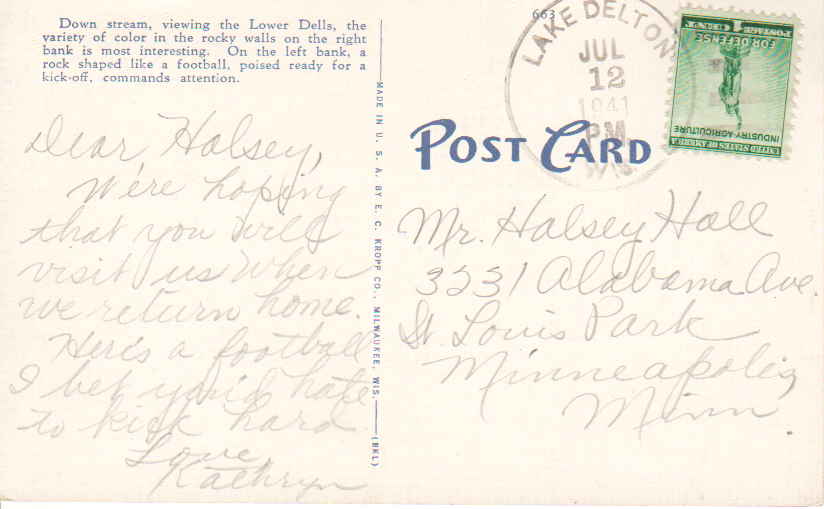 Down stream, viewing the Lower Dells, the
variety of color in the rocky walls on the right
bank is most interesting. On the left bank, a
rock shaped like a football, poised ready for a
kick-off, commands attention.
Dear Halsey,
We're hoping
that you will
visit us when
we return home.
Here's a football
I bet you'd hate
to kick hard
Love,
Kathryn
MADE IN U. S. A. BY E. C. KROPP CO., MILWAUKEE, WIS. (BKL)
663
LAKE DELTON
JUL
12
1941
P.M.
WIS.
POSTAGE 1 CENT
FOR DEFENSE
INDUSTRY-AGRICULTURE
UNITED STATES OF AMERICA
POST CARD
Mr. Halsey Hall
3231 Alabama Ave.
St. Louis Park
Minneapolis
Minn.